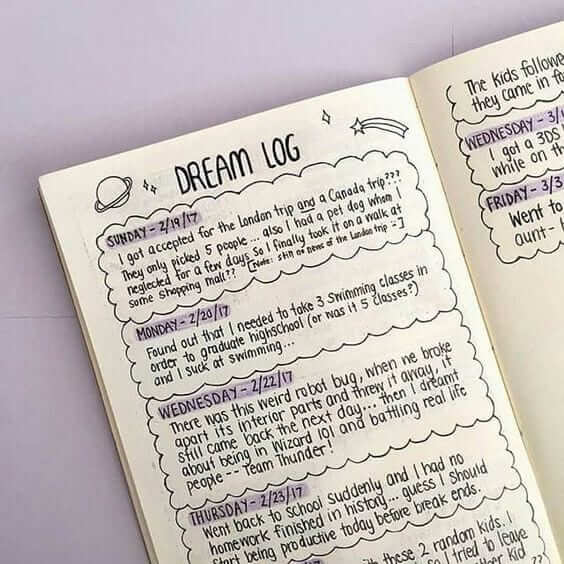 DREAM LOG
SUNDAY - 2/19/17
I got accepted for the London trip and a Canada trip???
They only picked 5 people... also I had a pet dog whom I
neglected for a few days so I finally took it on a walk at
some shopping mall?? [Note: still no news of the London trip -]
MONDAY - 2/20/17
Found out that I needed to take 3 swimming classes in
order to graduate highschool (or was it 5 classes?)
and I suck at swimming...
WEDNESDAY - 2/22/17
There was this weird robot bug, when we broke
apart its interior parts and threw it away, it
still came back the next day... then I dreamt
about being in Wizard 101 and battling real life
people -- Team Thunder!
THURSDAY - 2/23/17
Went back to school suddenly and I had no
homework finished in history... guess I should
start being productive today before break ends.
with these 2 random kids. I
so I tried to leave
other kid
??
The kids followe
they came in fo
WEDNESDAY - 3/1
I got a 3DS
while on th
FRIDAY - 3/3
Went to
aunt-